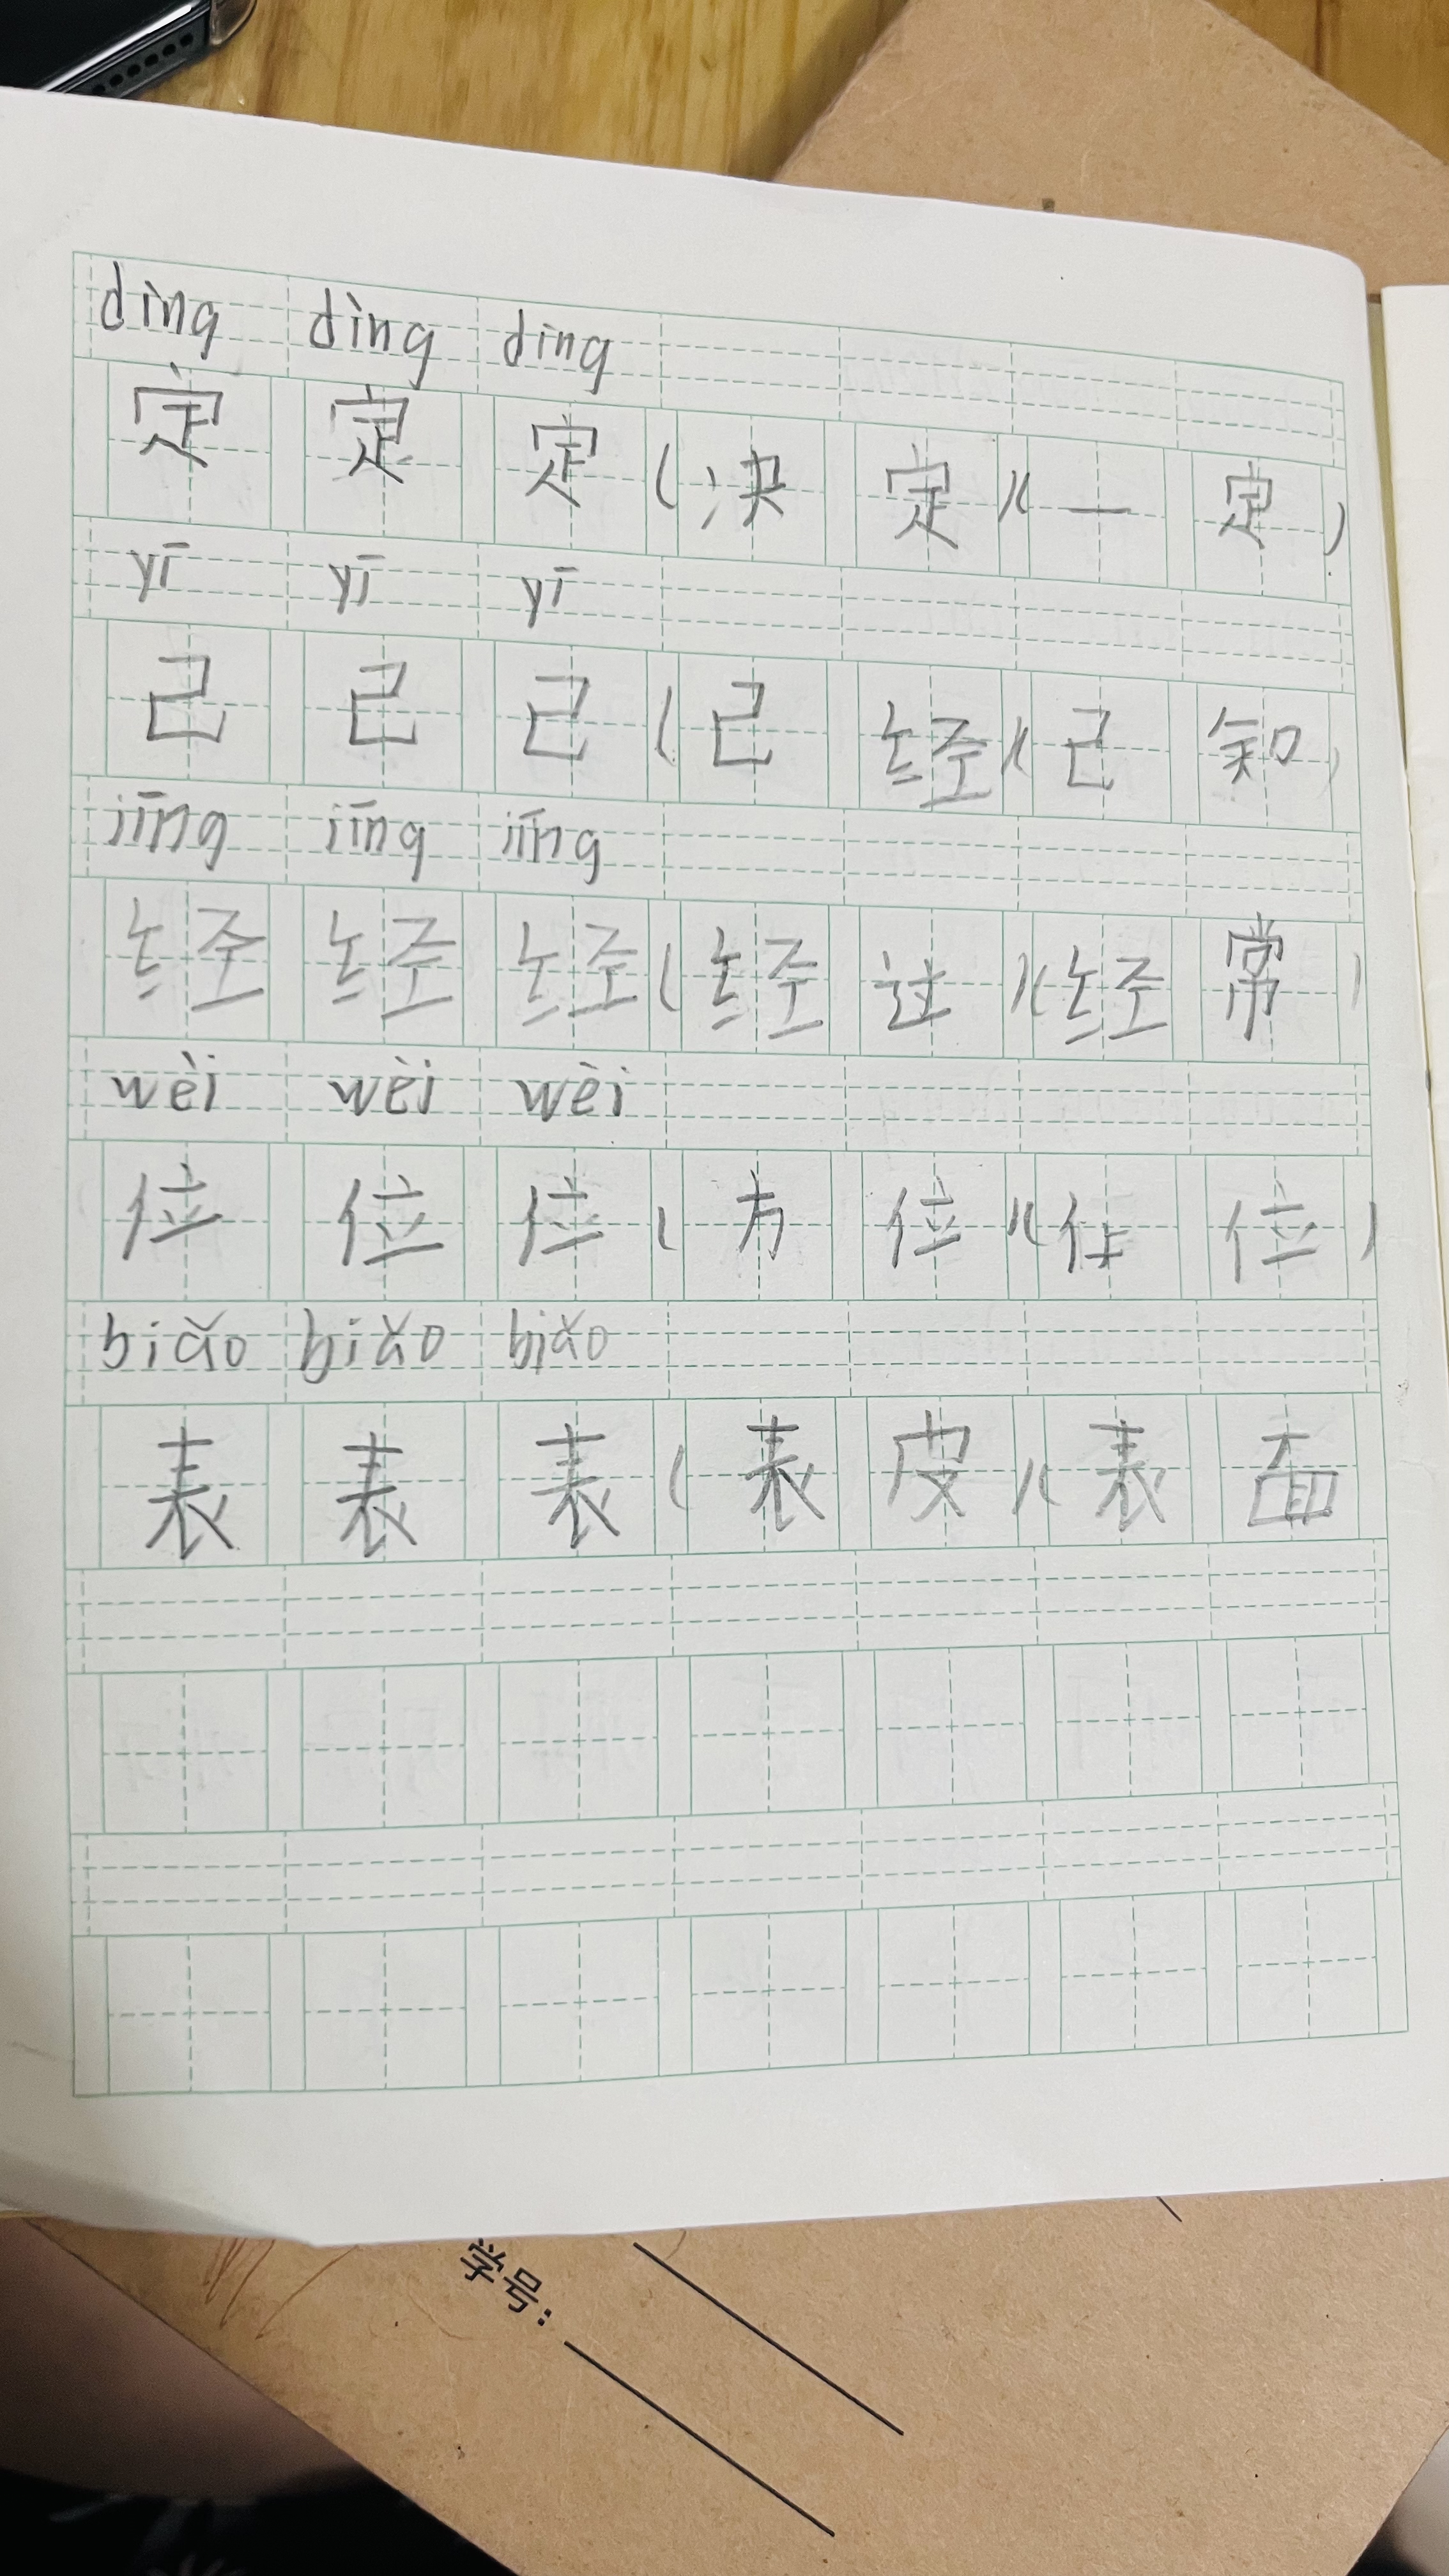 dìng dìng dìng
定 定 定 ( 决 定 )( 一 定 )
yī yī yī
己 己 己 ( 己 经 )( 己 知 )
jīng jīng jīng
经 经 经 ( 经 过 )( 经 常 )
wèi wèi wèi
位 位 位 ( 方 位 )( 位 )
biǎo biǎo biǎo
表 表 表 ( 表 皮 )( 表 面
学号: